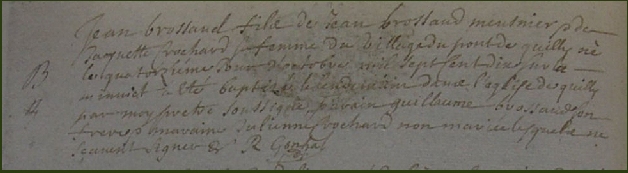 Jean brossaud fils de jean brossaud meusnier & de
jacquette frochard sa femme du village du pont de quilly né
le quatorzième jour mil sept sent dix sur
minuict a été baptisé le lendemain dans l'église de quilly
par moy pretre soussigné parain guillaume brossaud son
frere & maraine Julienne frochard non mariée lesquels ne
sçavent signer R
B